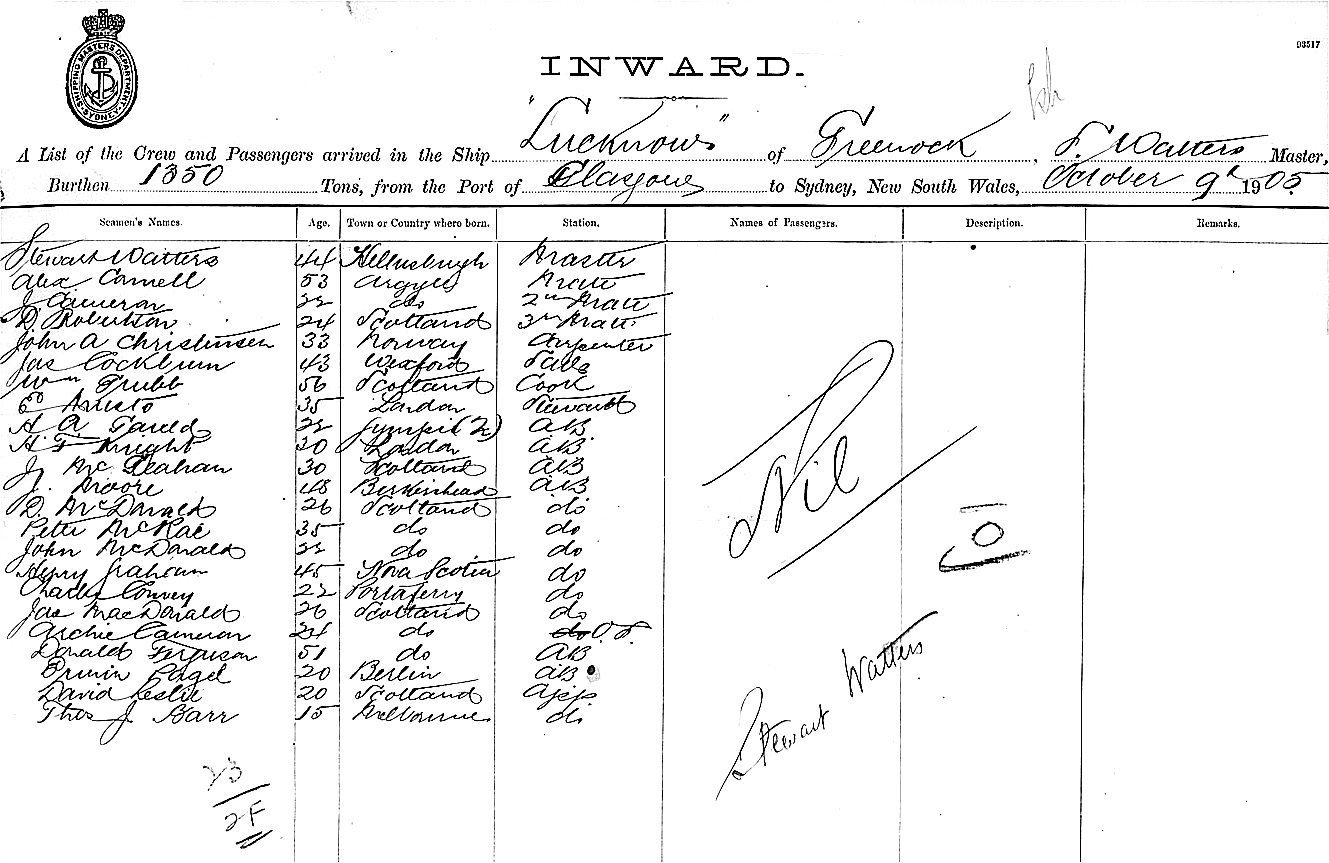 SHIPPING MASTERS DEPARTMENT SYDNEY
93517
INWARD.
A List of the Crew and Passengers arrived in the Ship "Lucknow" of Greenock, S. Watters Master,
Burthen 1350 Tons, from the Port of Glasgow to Sydney, New South Wales, October 9th 1905
Seamen's Names. Age. Town or Country where born. Station. Names of Passengers. Description. Remarks.
Stewart Watters 44 Hellensburgh Master
Alex Connell 53 Argyle Mate
J Cameron 22 do 2nd Mate
D. Robertson 24 Scotland 3rd Mate
John A Christensen 33 Norway Carpenter
Jas Cockburn 43 Wexford Sails
Wm Grubb 56 Scotland Cook
35 London Steward
H A 22 AB
H F Knight 20 London AB
J. Mc 30 Scotland AB
J. Moore 48 Birkenhead AB
D. McDonald 26 Scotland do
Peter McRae 35 do do
John McDonald 22 do do
Henry Graham 45 Nova Scotia do
Charles Convey 22 Portaferry do
Jas MacDonald 26 Scotland do
Archie Cameron 24 do do O.S.
Donald Ferguson 51 do AB
Erwin Pagel 20 Berlin AB
David Leslie 20 Scotland App
Thos J. Barr 15 Melbourne do
Nil
Stewart Watters
23
2F